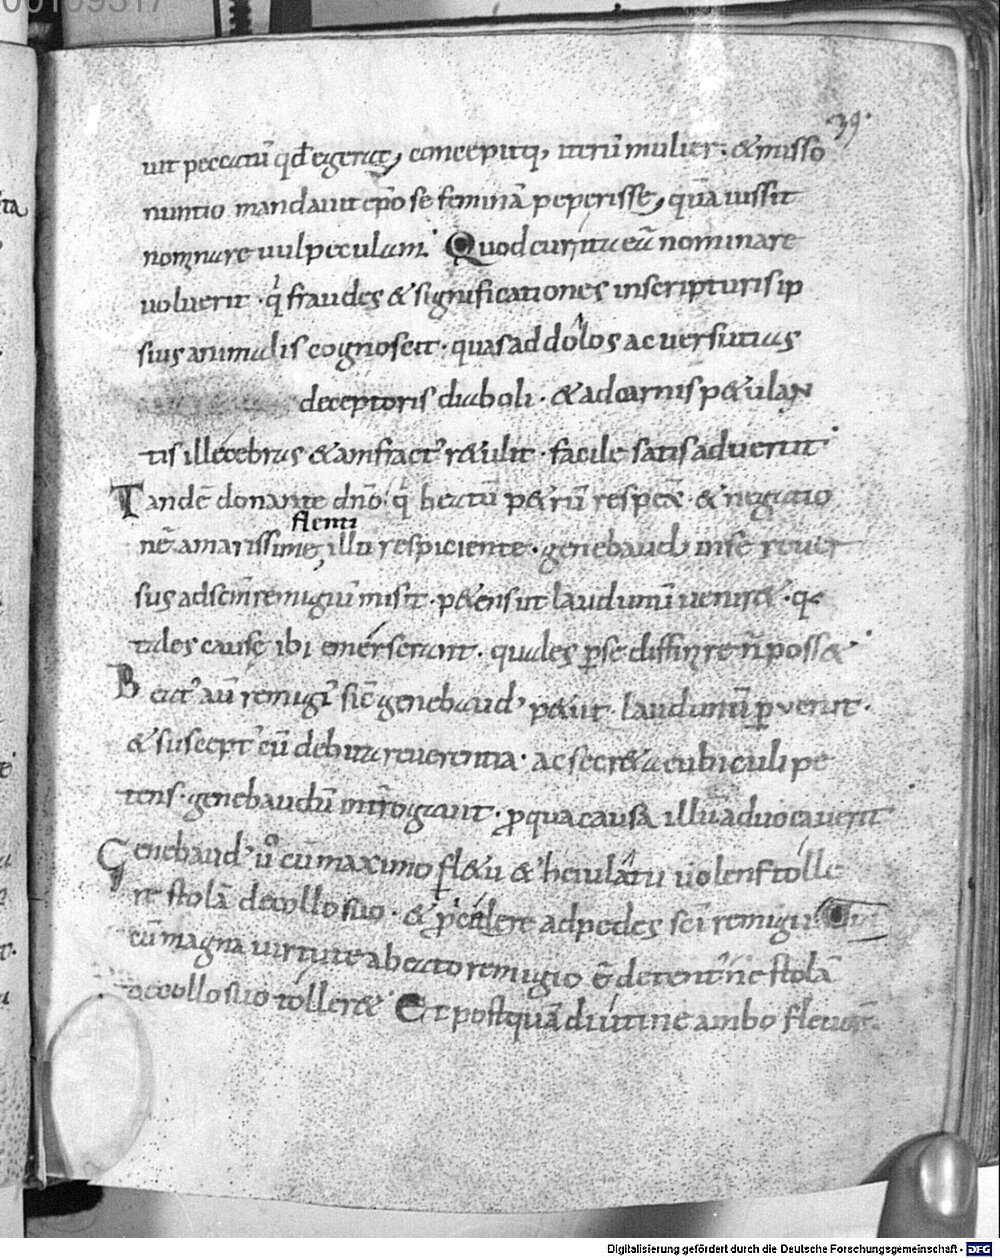 00109317
39.
uit peccatũ qđ egerat, concepitq; iterũ mulier. & misso
nuntio mandauit ep̃o se feminã peperisse, quã iussit
nominare uulpeculam. Quod cur ita eã nominare
uoluerit · q̇ fraudes & significationes in scripturis ip
sius animalis cognoscit · quas ad dolos ac uersutias
deceptoris diaboli · & ad carnis p&ulan
tis illecebras & amfract᾽ r&ulit · facile satis aduertit·
Tandẽ donante dño · q̇ beatũ p&rũ respex& · & negatio
flenti
nẽ amarissime, illũ respiciente · genebaud᾽ in se reuer
sus ad scm̃ remigiũ misit · p&ens ut laudunũ uenir& · q
tales causę ibi emerserant · quales p se diffinire ñ poss&·
Beat᾽ aũ remigi᾽ sic genebaud᾽ p&iit · laudunũ puenit.
& suscept᾽ cũ debita reuerentia · ac secr&a cubiculi pe
tens · genebaudũ interrogauit · p qua causa illũ aduocauerit
Genebaud᾽ ũ cũ maximo fl&u & heiulatu uolens tolle
re stolã de collo suo · & pcidere ad pedes sci remigii
cũ magna uirtute a beato remigio ẽ detent᾽ ne stolã
a collo suo toller& Et postquã diutine ambo fleuer̃.
Digitalisierung gefördert durch die Deutsche Forschungsgemeinschaft - DFG